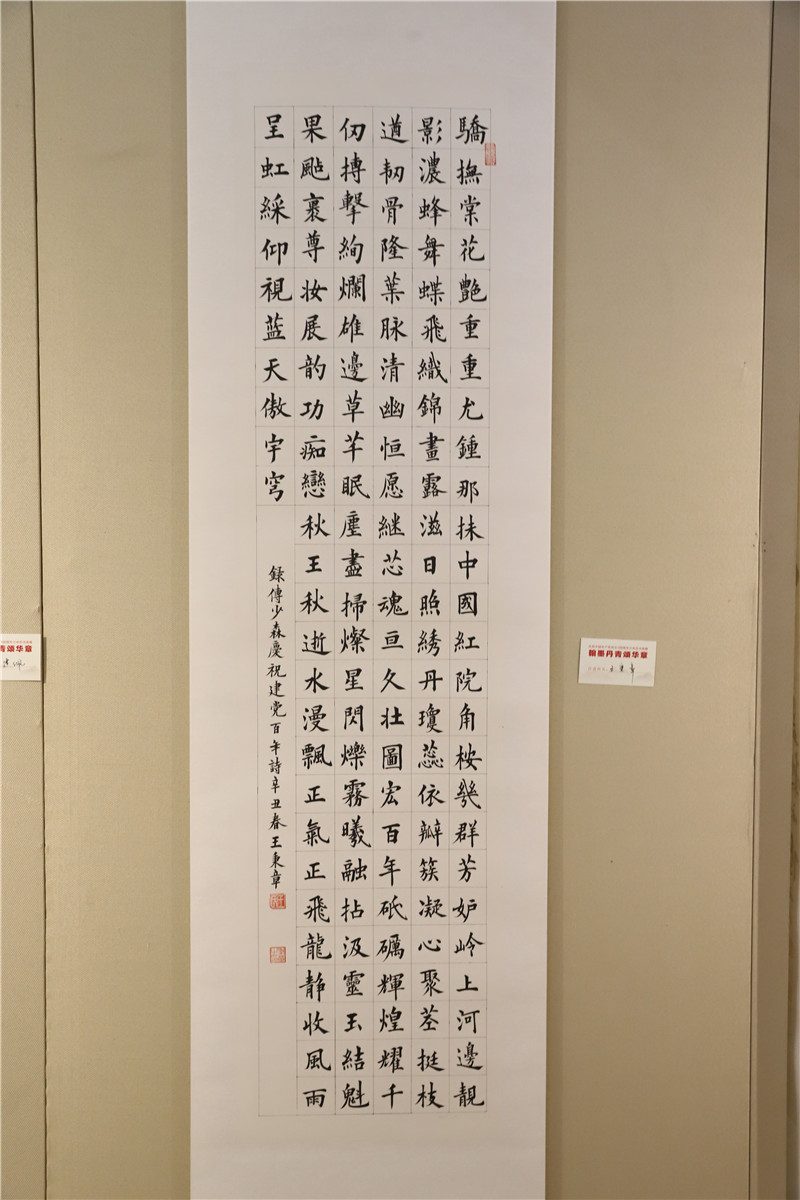 驕撫棠花艷重重尤鍾那抹中國紅院角桉幾群芳妒岭上河邊靚
影濃蜂舞蝶飛織錦畫露滋日照綉丹瓊蕊依瓣簇凝心聚茎挺枝
遒韧骨隆葉脉清幽恒愿継芯魂亘久壮圖宏百年砥礪輝煌耀千
仞摶擊絢爛雄邊草芊眠塵盡掃燦星閃爍霧曦融拈汲靈玉結魁
果颭裹尊妆展韵功痴戀秋王秋逝水漫飄正氣正飛龍静收風雨
呈虹綵仰視蓝天傲宇穹
録傅少森慶祝建党百年詩辛丑春王秉章
翰墨丹青颂华章
王秉章
青颂华章